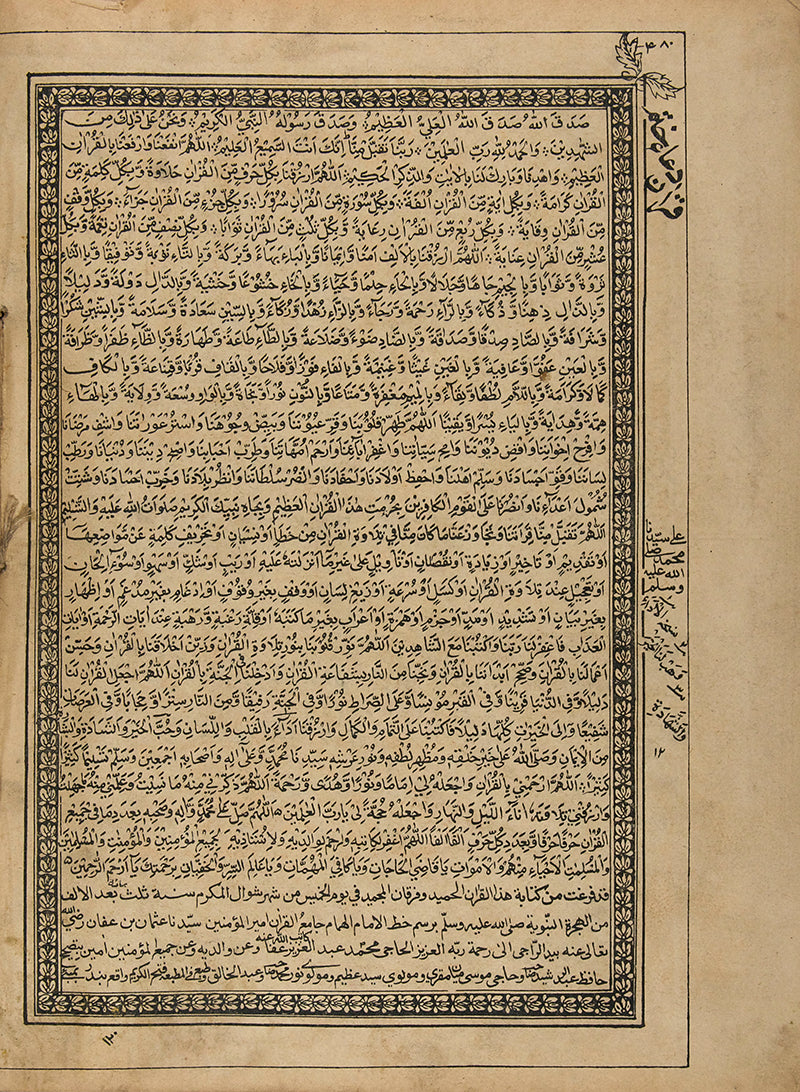 ۴۸۰
صَدَقَ اللهُ صَدَقَ اللهُ الْعَلِيُّ الْعَظِيْمُ وَصَدَقَ رَسُوْلُهُ النَّبِيُّ الْكَرِيْمُ وَنَحْنُ عَلٰى ذٰلِكَ مِنَ
الشّٰهِدِيْنَ وَالْحَمْدُ لِلّٰهِ رَبِّ الْعٰلَمِيْنَ رَبَّنَا تَقَبَّلْ مِنَّا اِنَّكَ اَنْتَ السَّمِيْعُ الْعَلِيْمُ اَللّٰهُمَّ انْفَعْنَا وَارْفَعْنَا بِالْقُرْاٰنِ
الْعَظِيْمِ وَاهْدِنَا وَبَارِكْ لَنَا بِالْاٰيٰتِ وَالذِّكْرِ الْحَكِيْمِ اَللّٰهُمَّ ارْزُقْنَا بِكُلِّ حَرْفٍ مِّنَ الْقُرْاٰنِ حَلَاوَةً وَبِكُلِّ كَلِمَةٍ مِّنَ
الْقُرْاٰنِ كَرَامَةً وَبِكُلِّ اٰيَةٍ مِّنَ الْقُرْاٰنِ اُلْفَةً وَبِكُلِّ سُوْرَةٍ مِّنَ الْقُرْاٰنِ سُرُوْرًا وَبِكُلِّ جُزْءٍ مِّنَ الْقُرْاٰنِ جَزَآءً وَبِكُلِّ وَقْفٍ
مِّنَ الْقُرْاٰنِ وِقَايَةً وَبِكُلِّ رُبُعٍ مِّنَ الْقُرْاٰنِ رِعَايَةً وَّبِكُلِّ ثُلُثٍ مِّنَ الْقُرْاٰنِ ثَوَابًا وَبِكُلِّ نِصْفٍ مِّنَ الْقُرْاٰنِ نِعْمَةً وَّبِكُلِّ
عُشْرٍ مِّنَ الْقُرْاٰنِ عِنَايَةً اَللّٰهُمَّ ارْزُقْنَا بِالْاَلِفِ اَمْنًا وَاِيْمَانًا وَبِالْبَاءِ بَهَاءً وَّبَرَكَةً وَّبِالتَّاءِ تَوْبَةً وَّتَوْفِيْقًا وَّبِالثَّاءِ
ثَرْوَةً وَثَوَابًا وَبِالْجِيْمِ جَلَالًا وَبِالْحَاءِ حِلْمًا وَّحَيَاءً وَّبِالْخَاءِ خُشُوْعًا وَّخَشْيَةً وَبِالدَّالِ دَوْلَةً وَّدَلِيْلًا
وَّبِالذَّالِ ذِهْنًا وَّذُكَاءً وَبِالرَّاءِ رَحْمَةً وَّرَجَاءً وَبِالزَّاءِ زُهْدًا وَّزَكَاءً وَبِالسِّيْنِ سَعَادَةً وَّسَلَامَةً وَّبِالشِّيْنِ شُكْرًا
وَّشَرَافَةً وَبِالصَّادِ صِدْقًا وَّصَدَاقَةً وَبِالضَّادِ ضَوْءً وَّضَلَاعَةً وَبِالطَّاءِ طَاعَةً وَّطَهَارَةً وَّبِالظَّاءِ ظَفَرًا وَّظَرَافَةً
وَبِالْعَيْنِ عَفْوًا وَّعَافِيَةً وَبِالْغَيْنِ غَيْثًا وَّغَنِيْمَةً وَبِالْفَاءِ فَوْزًا وَّفَلَاحًا وَّبِالْقَافِ قُرْبًا وَّقَنَاعَةً وَّبِالْكَافِ
كَمَالًا وَّكَرَامَةً وَّبِاللَّامِ لُطْفًا وَّلِقَاءً وَّبِالْمِيْمِ مَغْفِرَةً وَّمَتَاعًا وَّبِالنُّوْنِ نُوْرًا وَّنَجَاةً وَّبِالْوَاوِ وُسْعَةً وَّوِلَايَةً وَبِالْهَاءِ
هِمَّةً وَّهِدَايَةً وَّبِالْيَاءِ يُسْرًا وَّيَقِيْنًا اَللّٰهُمَّ طَهِّرْ قُلُوْبَنَا وَقَرِّ عُيُوْنَنَا وَبَيِّضْ وُجُوْهَنَا وَاسْتُرْ عَوْرَتَنَا وَاشْفِ مَرْضَانَا
وَافْرِحْ اِخْوَانَنَا وَاقْضِ دُيُوْنَنَا وَامْحُ سَيِّاٰتِنَا وَاغْفِرْ اٰبَآءَنَا وَارْحَمْ اُمَّهَاتِنَا وَطَرِّبْ اَحْبَابَنَا وَاصْلِحْ دِيْنَنَا وَدُنْيَانَا وَرَطِّبْ
لِسَانَنَا وَقَوِّ اَجْسَادَنَا وَسَلِّمْ اَهْلَنَا وَاحْفَظْ اَوْلَادَنَا وَاَحْفَادَنَا وَانْصُرْ سُلْطَانَنَا وَانْظُرْ بِلَادَنَا وَخَرِّبْ اَحْسَادَنَا وَشَتِّتْ
شُمُوْلَ اَعْدَاءِنَا وَانْصُرْنَا عَلَى الْقَوْمِ الْكَافِرِيْنَ بِحُرْمَتِ هٰذَا الْقُرْاٰنِ الْعَظِيْمِ وَبِجَاهِ نَبِيِّكَ الْكَرِيْمِ صَلَوَاتُ اللهِ عَلَيْهِ وَالتَّسْلِيْمِ
اَللّٰهُمَّ تَقَبَّلْ مِنَّا قِرَاءَتَنَا وَتَجَاوَزْ عَنَّا مَا كَانَ مِنَّا فِيْ تِلَاوَةِ الْقُرْاٰنِ مِنْ خَطَإٍ اَوْ نِسْيَانٍ اَوْ تَحْرِيْفِ كَلِمَةٍ عَنْ مَّوَاضِعِهَا
اَوْ تَقْدِيْمٍ اَوْ تَاخِيْرٍ اَوْ زِيَادَةٍ اَوْ نُقْصَانٍ اَوْ تَاْوِيْلٍ عَلٰى غَيْرِ مَا اَنْزَلْتَهُ عَلَيْهِ اَوْ رَيْبٍ اَوْ شَكٍّ اَوْ سَهْوٍ اَوْ سُوْءِ اِلْحَانٍ
اَوْ تَعْجِيْلٍ عِنْدَ تِلَاوَةِ الْقُرْاٰنِ اَوْ كَسَلٍ اَوْ سُرْعَةٍ اَوْ زَيْغِ لِسَانٍ اَوْ وَقْفٍ بِغَيْرِ وُقُوْفٍ اَوْ اِدْغَامٍ بِغَيْرِ مُدْغَمٍ اَوْ اِظْهَارٍ
بِغَيْرِ بَيَانٍ اَوْ تَشْدِيْدٍ اَوْ مَدٍّ اَوْ جَزْمٍ اَوْ هَمْزَةٍ اَوْ اِعْرَابٍ بِغَيْرِ مَا كَتَبَهُ اَوْ قِلَّةِ رَغْبَةٍ وَّرَهْبَةٍ عِنْدَ اٰيَاتِ الرَّحْمَةِ اَوْ اٰيَاتِ
الْعَذَابِ فَاغْفِرْ لَنَا رَبَّنَا وَاكْتُبْنَا مَعَ الشَّاهِدِيْنَ اَللّٰهُمَّ نَوِّرْ قُلُوْبَنَا بِنُوْرِ تِلَاوَةِ الْقُرْاٰنِ وَزَيِّنْ اَخْلَاقَنَا بِالْقُرْاٰنِ وَحَسِّنْ
اَعْمَالَنَا بِالْقُرْاٰنِ وَصَحِّحْ اَبْدَانَنَا بِالْقُرْاٰنِ وَنَجِّنَا مِنَ النَّارِ بِشَفَاعَةِ الْقُرْاٰنِ وَاَدْخِلْنَا فِي الْجَنَّةِ بِالْقُرْاٰنِ اَللّٰهُمَّ اجْعَلِ الْقُرْاٰنَ لَنَا
دَلِيْلًا وَّفِي الدُّنْيَا قَرِيْنًا وَّفِي الْقَبْرِ مُوْنِسًا وَّعَلَى الصِّرَاطِ نُوْرًا وَّفِي الْجَنَّةِ رَفِيْقًا وَّمِنَ النَّارِ سِتْرًا وَّحِجَابًا وَّفِي الْعَرَصَاتِ
شَفِيْعًا وَّاِلَى الْخَيْرَاتِ كُلِّهَا دَلِيْلًا فَاكْتُبْنَا عَلَى التَّمَامِ وَالْكَمَالِ وَارْزُقْنَا اَدَاءً بِالْقَلْبِ وَاللِّسَانِ وَحُبَّ الْخَيْرِ وَالسَّعَادَةِ وَالْبِشَارَةِ
مِنَ الْاِيْمَانِ وَصَلَّى اللهُ عَلٰى خَيْرِ خَلْقِهٖ وَمَظْهَرِ لُطْفِهٖ وَنُوْرِ عَرْشِهٖ سَيِّدِنَا مُحَمَّدٍ وَّعَلٰى اٰلِهٖ وَاَصْحَابِهٖ اَجْمَعِيْنَ وَسَلَّمَ تَسْلِيْمًا كَثِيْرًا
كَثِيْرًا اَللّٰهُمَّ ارْحَمْنِيْ بِالْقُرْاٰنِ وَاجْعَلْهُ لِيْ اِمَامًا وَّنُوْرًا وَّهُدًى وَّرَحْمَةً اَللّٰهُمَّ ذَكِّرْنِيْ مِنْهُ مَا نَسِيْتُ وَعَلِّمْنِيْ مِنْهُ مَا جَهِلْتُ
وَارْزُقْنِيْ تِلَاوَتَهُ اٰنَاءَ اللَّيْلِ وَالنَّهَارِ وَاجْعَلْهُ حُجَّةً لِيْ يَا رَبَّ الْعٰلَمِيْنَ اَللّٰهُمَّ صَلِّ عَلٰى مُحَمَّدٍ وَّاٰلِهٖ وَصَحْبِهٖ بِعَدَدِ مَا فِيْ جَمِيْعِ
الْقُرْاٰنِ حَرْفًا حَرْفًا وَبِعَدَدِ كُلِّ حَرْفٍ اَلْفًا اَلْفًا اَللّٰهُمَّ اغْفِرْ لِكَاتِبِهٖ وَارْحَمْ لِوَالِدَيْهِ وَلِاُسْتَاذَيْهِ لِجَمِيْعِ الْمُؤْمِنِيْنَ وَالْمُؤْمِنٰتِ وَالْمُسْلِمِيْنَ
وَالْمُسْلِمٰتِ الْاَحْيَاءِ مِنْهُمْ وَالْاَمْوَاتِ يَا قَاضِيَ الْحَاجَاتِ وَيَا كَافِيَ الْمُهِمَّاتِ وَيَا عَالِمَ السِّرِّ وَالْخَفِيَّاتِ بِرَحْمَتِكَ يَا اَرْحَمَ الرّٰحِمِيْنَ
قد فرغت من كتابة هذا القران الحميد وفرقان المجيد في يوم الخميس من شهر شوال المكرم سنة ثلث بعد الالف
من الهجرة النبوية صلى الله عليه وسلم برسم خط الامام الهمام جامع القران امير المؤمنين سيدنا عثمان بن عفان رضي الله
تعالى عنه بيد الراجي الى رحمة ربه العزيز الحاجي محمد عبد العزيز عفا الله عنه وعن والديه وعن جميع المؤمنين امين بتصحيح
حافظ وحاجي موسى مقري ومولوي سيد عظيم ومولوي نور محمد وعبد الخالق المطبع فتح الكريم واقع بندر بمبئي
على سيدنا
محمد صلى
الله عليه
وسلم
١٢